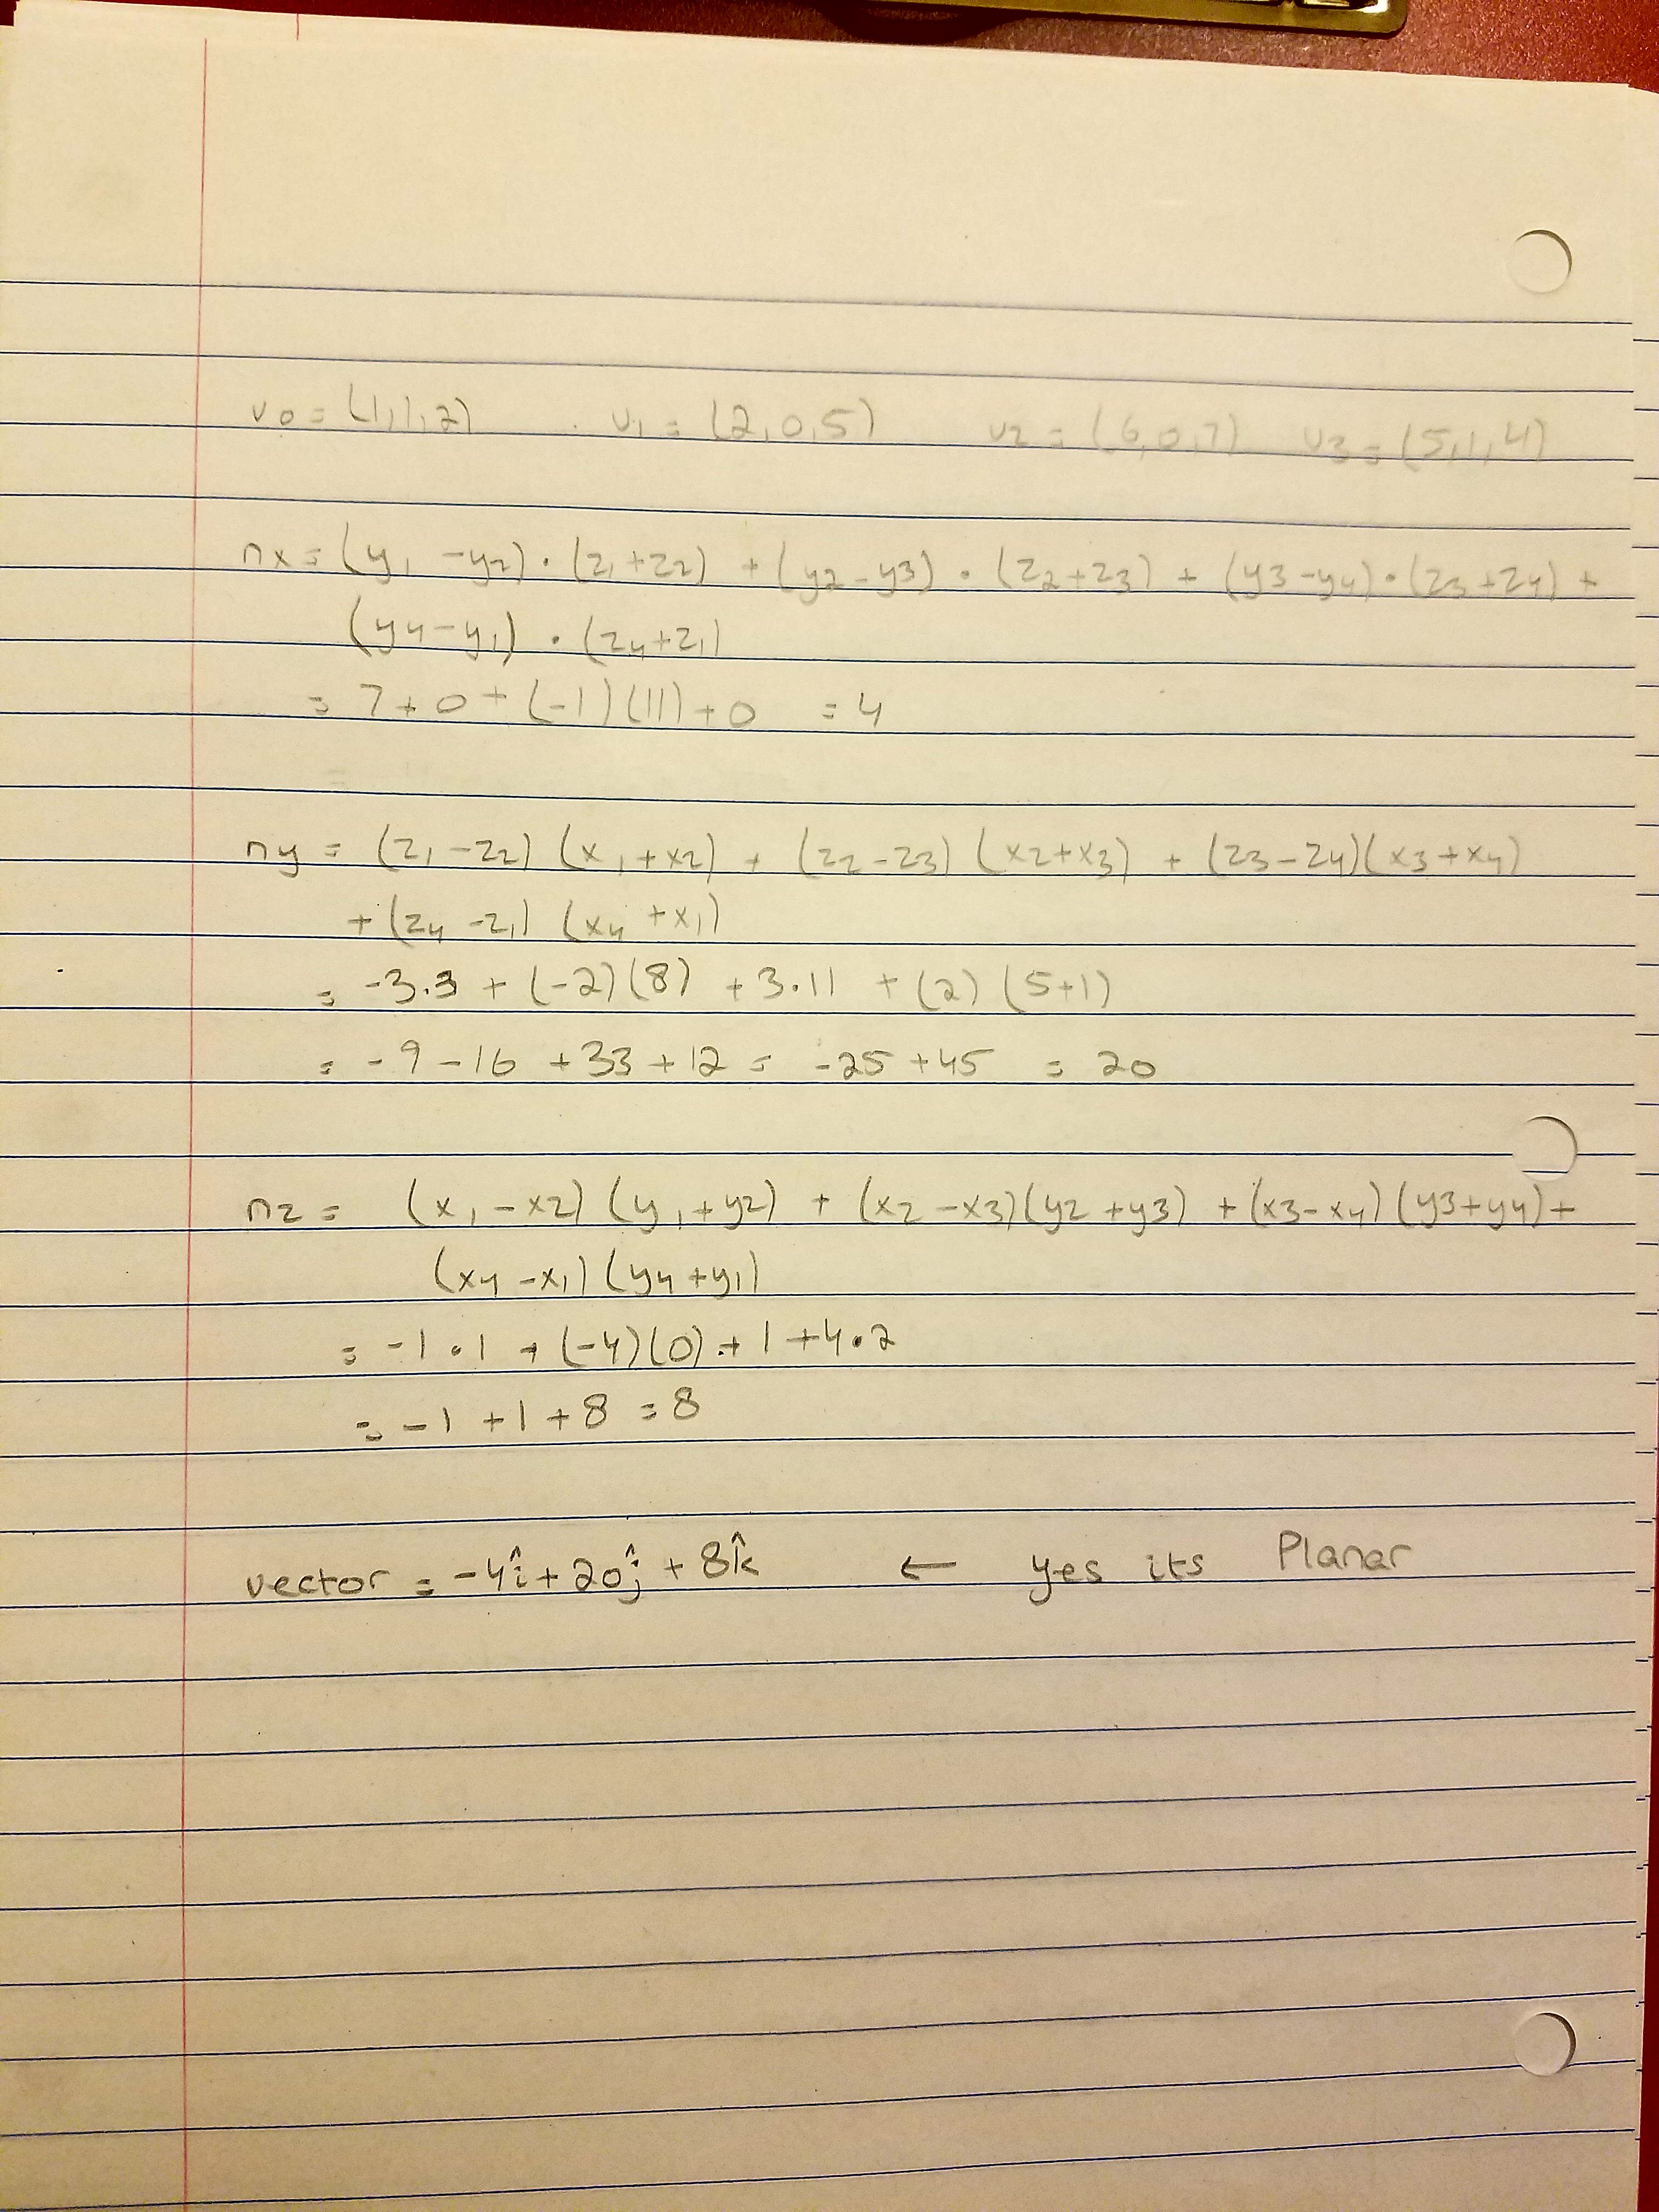 v0 = (1,1,2) v1 = (2,0,5) v2 = (6,0,7) v3 = (5,1,4)
nx = (y1 - y2) · (z1 + z2) + (y2 - y3) · (z2 + z3) + (y3 - y4) · (z3 + z4) +
(y4 - y1) · (z4 + z1)
= 7 + 0 + (-1)(11) + 0 = 4
ny = (z1 - z2) (x1 + x2) + (z2 - z3) (x2 + x3) + (z3 - z4)(x3 + x4)
+ (z4 - z1) (x4 + x1)
= -3.3 + (-2)(8) + 3.11 + (2) (5+1)
= -9 - 16 + 33 + 12 = -25 + 45 = 20
nz = (x1 - x2) (y1 + y2) + (x2 - x3)(y2 + y3) + (x3 - x4) (y3 + y4) +
(x4 - x1) (y4 + y1)
= -1 · 1 + (-4)(0) + 1 + 4 · 2
= -1 + 1 + 8 = 8
vector = -4î + 20ĵ + 8k̂ ← yes its Planar